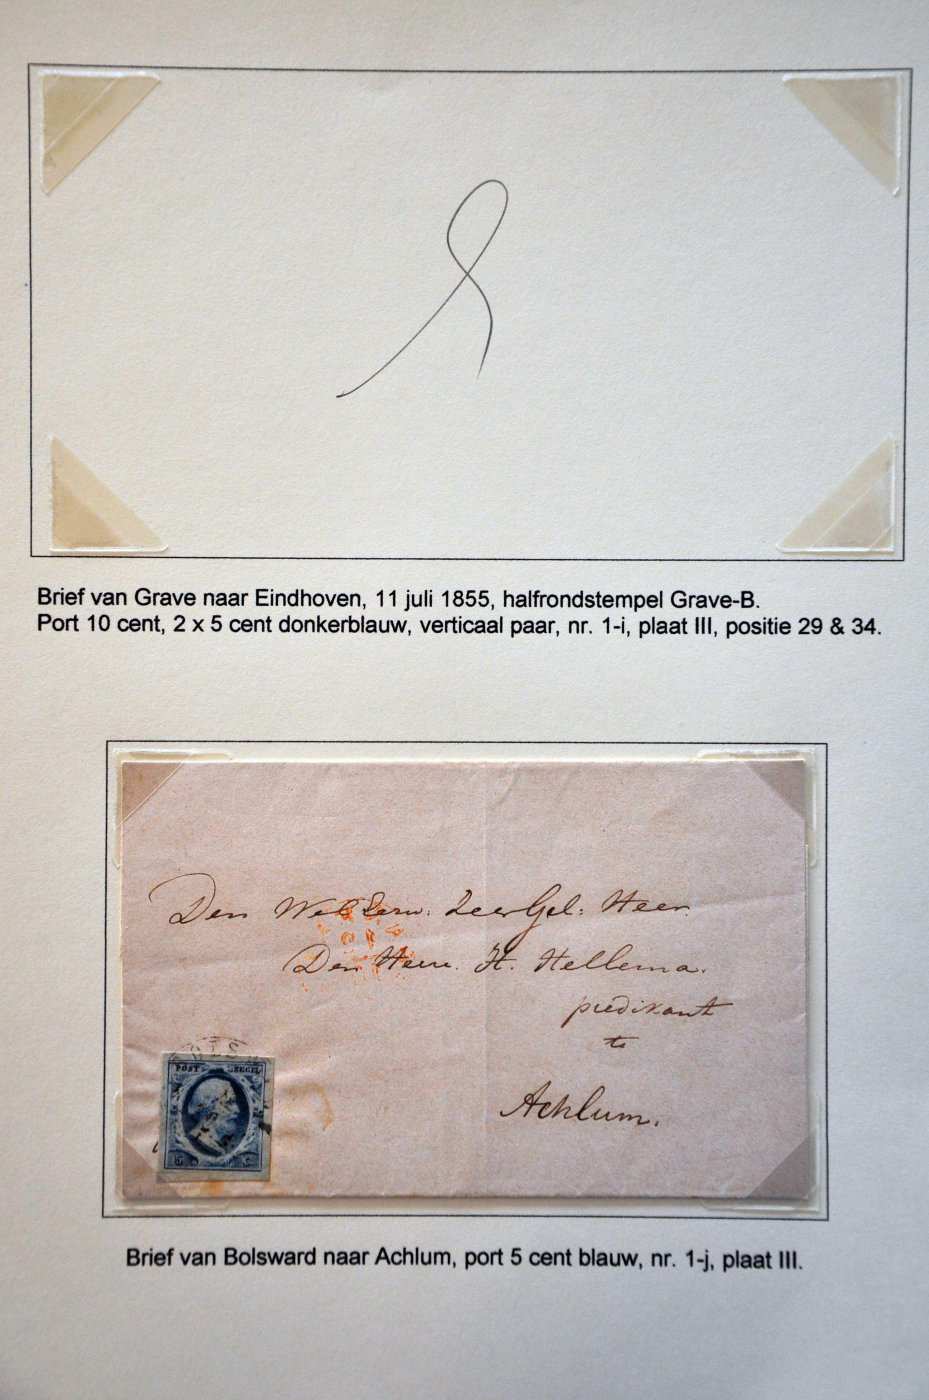 Brief van Grave naar Eindhoven, 11 juli 1855, halfrondstempel Grave-B.
Port 10 cent, 2 x 5 cent donkerblauw, verticaal paar, nr. 1-i, plaat III, positie 29 & 34.
Den Wel Eerw. Zeer Gel: Heer
Den Heer. H. Hellema.
predikant
te
Achlum.
POST ZEGEL
5 C.
Brief van Bolsward naar Achlum, port 5 cent blauw, nr. 1-j, plaat III.